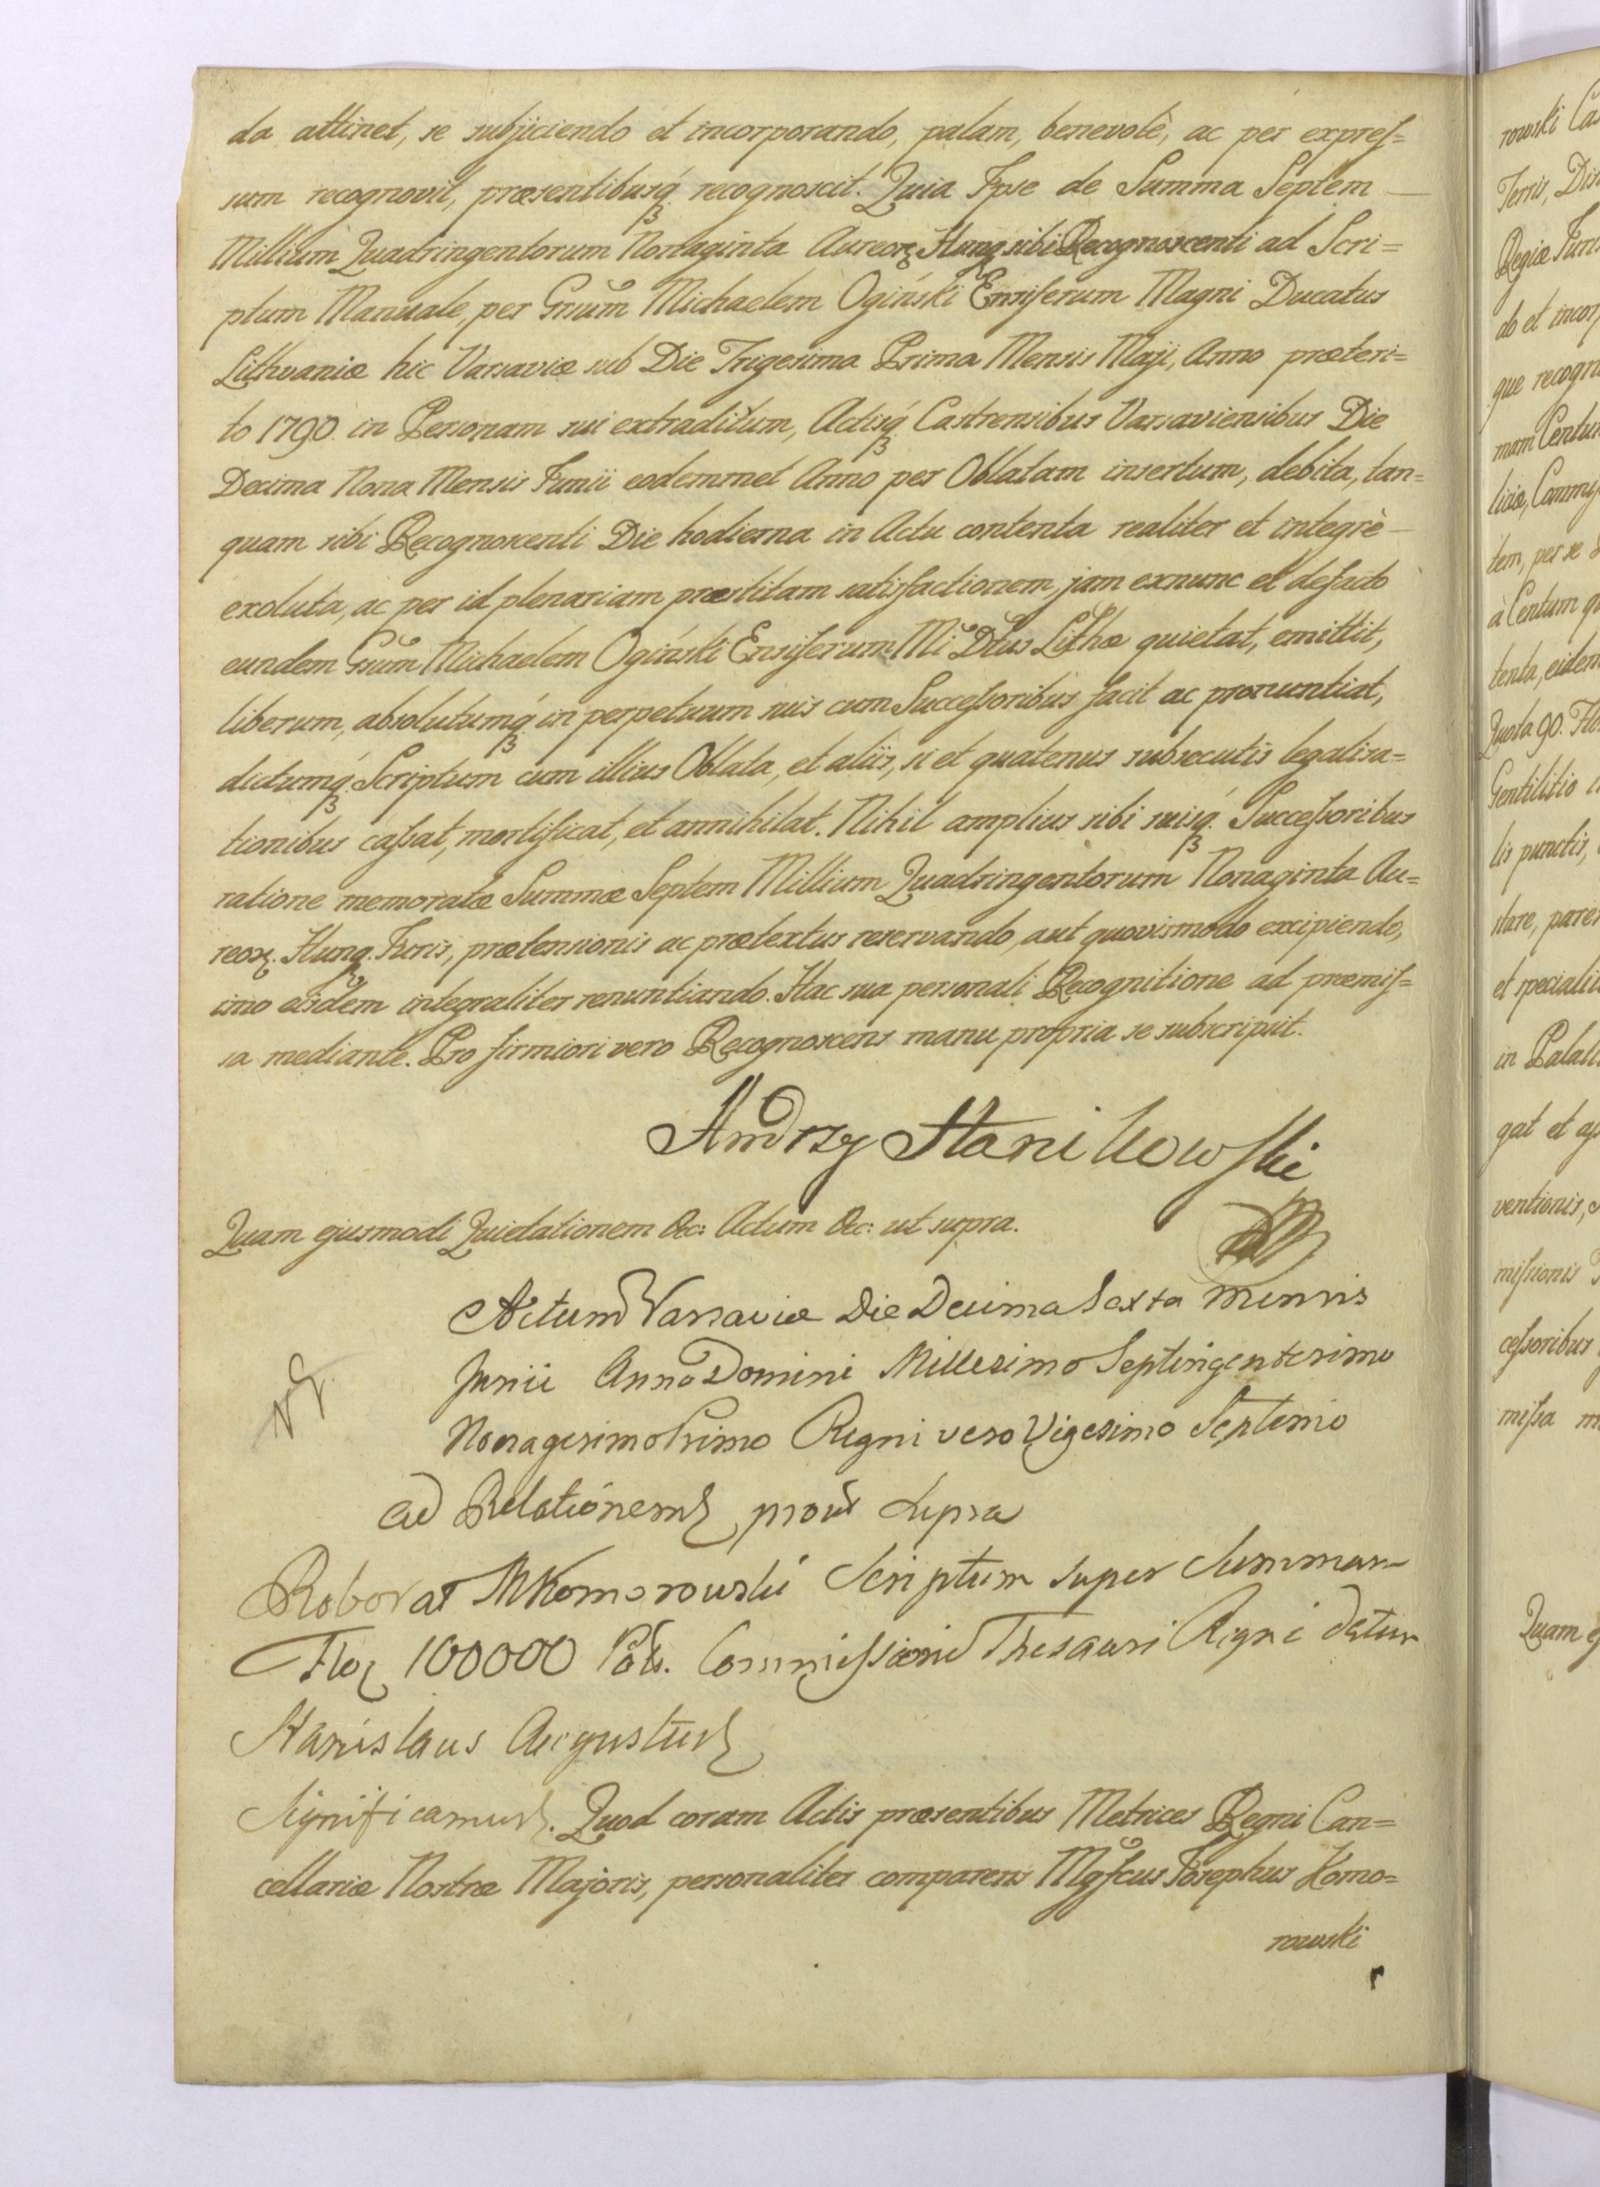 da attinet, se subjiciendo et incorporando, palam, benevolè, ac per expres=
sum recognovit, præsentibusq́ recognoscit. Quia Ipse de Summa Septem
Millium Quadringentorum Nonaginta Aureor. Hung. sibi Recognoscenti ad Scri=
ptum Manuale, per Gnum Michaelem Ogiński Ensiferum Magni Ducatus
Lithvaniæ hic Varsaviæ sub Die Trigesima Prima Mensis Maji, Anno præteri=
to 1790. in Personam sui extraditum, Actisq́ Castrensibus Varsaviensibus Die
Decima Nona Mensis Junii eodemmet Anno per Oblatam insertum, debita, tan=
quam sibi Recognoscenti Die hodierna in Actu contenta realiter et integrè
exoluta, ac per id plenariam præstitam satisfactionem, jam exnunc et defacto
eundem Gnum Michaelem Ogiński Ensiferum Mi Dtus Lithæ quietat, emittit,
liberum, absolutumq́ in perpetuum suis cum Successoribus facit ac pronuntiat,
dictumq́ Scriptum cum illius Oblata, et aliis, si et quatenus subsecutis legalisa=
tionibus cassat, mortificat, et annihilat. Nihil amplius sibi suisq́ Successoribus
ratione memoratæ Summæ Septem Millium Quadringentorum Nonaginta Au=
reor. Hung. Juris, prætensionis ac prætextus reservando, aut quovismodo excipiendo,
imo eisdem integraliter renuntiando. Hac sua personali Recognitione ad præmis=
sa mediante. Pro firmiori vero Recognoscens manu propria se subscripsit.
Andrzy Stanikowski
Quam ejusmodi Quietationem &c: Actum &c: ut supra.
Actum Varsaviæ Die Decima Sexta Mensis
Junii Anno Domini Millesimo Septingentesimo
Nonagesimo Primo Regni vero Vigesimo Septimo
ad Relationem prout supra
Roborat Komorowski Scriptum super Summam
Flor 100000 Pol. Commissioni Thesauri Regni datum
Stanislaus Augustus
Significamus. Quod coram Actis præsentibus Metrices Regni Can=
cellariæ Nostræ Majoris, personaliter comparens Mgfcus Josephus Komo=
rowski
rowski
Terris,
Regiæ
do et
que
mam
liciæ,
tem, per se
à Centum
tenta,
Quota 90.
Gentilitio
lis punctis,
stare,
et
in
gat et
ventionis,
missionis
cessoribus
missa
Quam